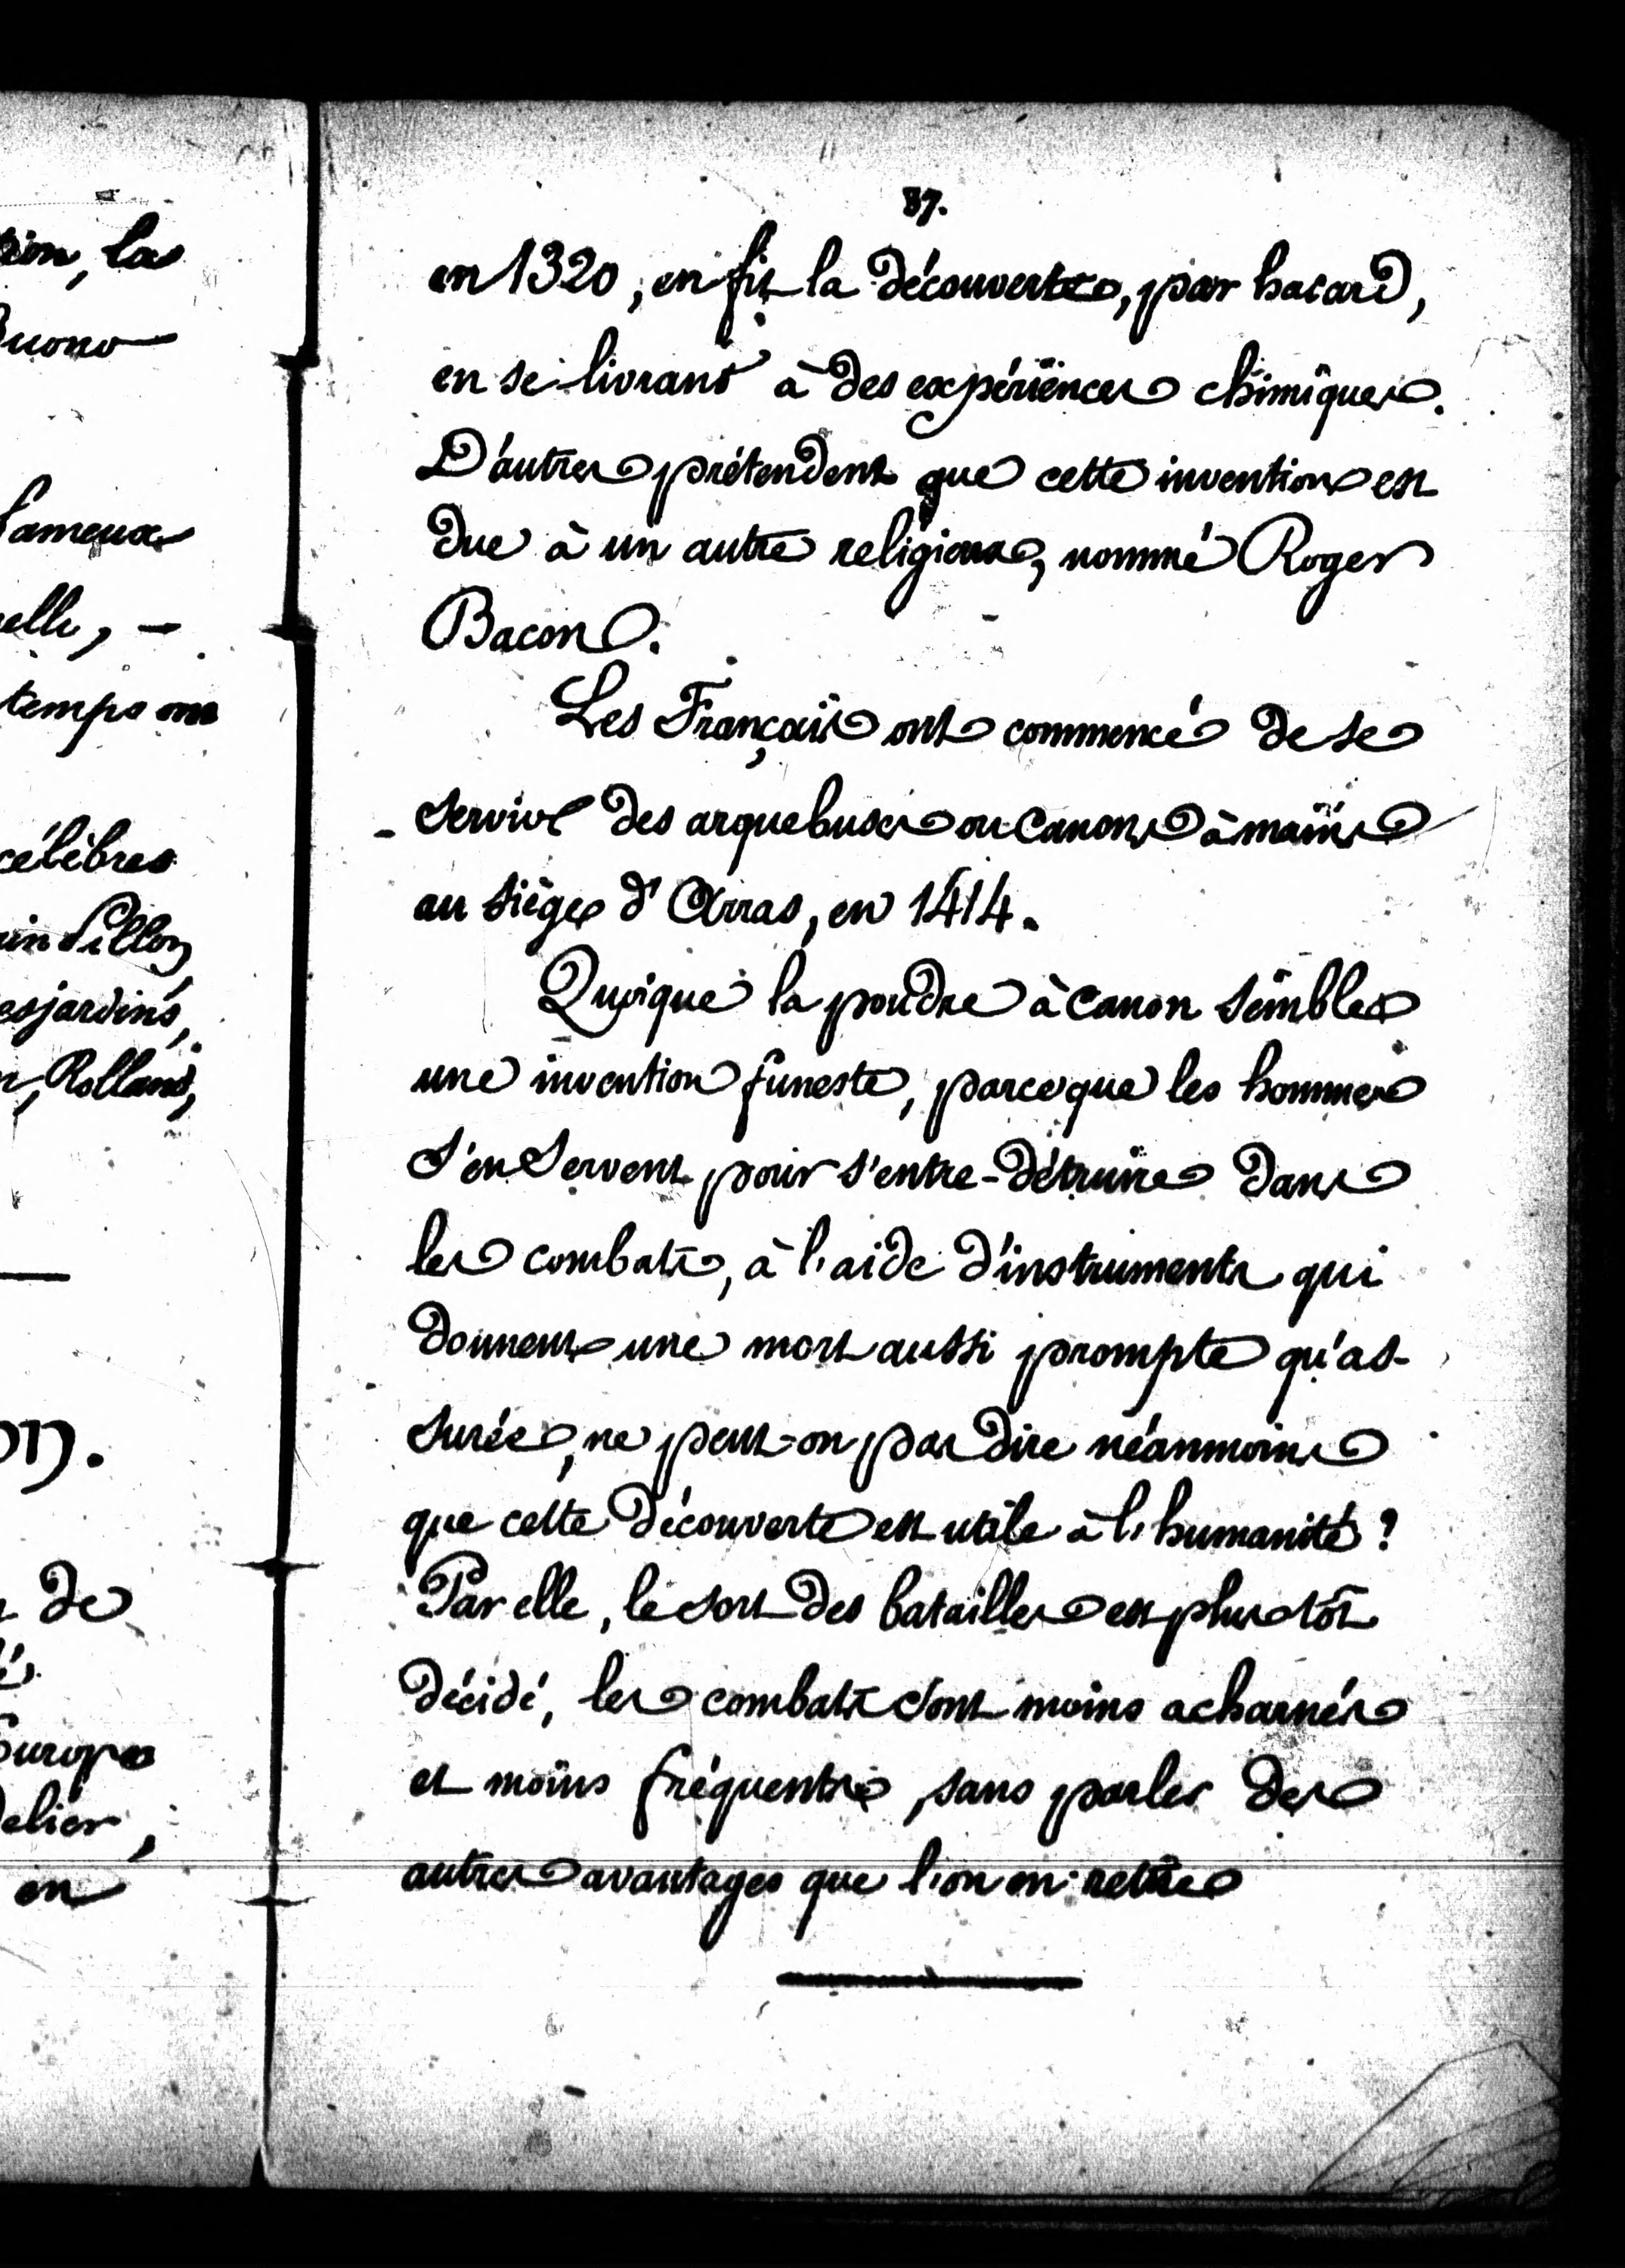 ion, la
uono
fameux
elle, —
temps on
célèbres
in Pillon,
esjardins,
n, Rolland,
on.
de
Europe
delier,
en
37.
en 1320, en fit la découverte, par hazard,
en se livrant à des expériences chimiques.
D'autres prétendent que cette invention est
due à un autre religieux, nommé Roger
Bacon.
Les Français ont commencé de se
servir des arquebuses ou canons à mains
au siège d'Arras, en 1414.
Quoique la poudre à canon semble
une invention funeste, parceque les hommes
s'en servent pour s'entre-détruire dans
les combats, à l'aide d'instruments qui
donnent une mort aussi prompte qu'as-
surée, ne peut-on pas dire néanmoins
que cette découverte est utile à l'humanité ?
Par elle, le sort des batailles est plus tôt
décidé, les combats sont moins acharnés
et moins fréquents, sans parler des
autres avantages que l'on en retire